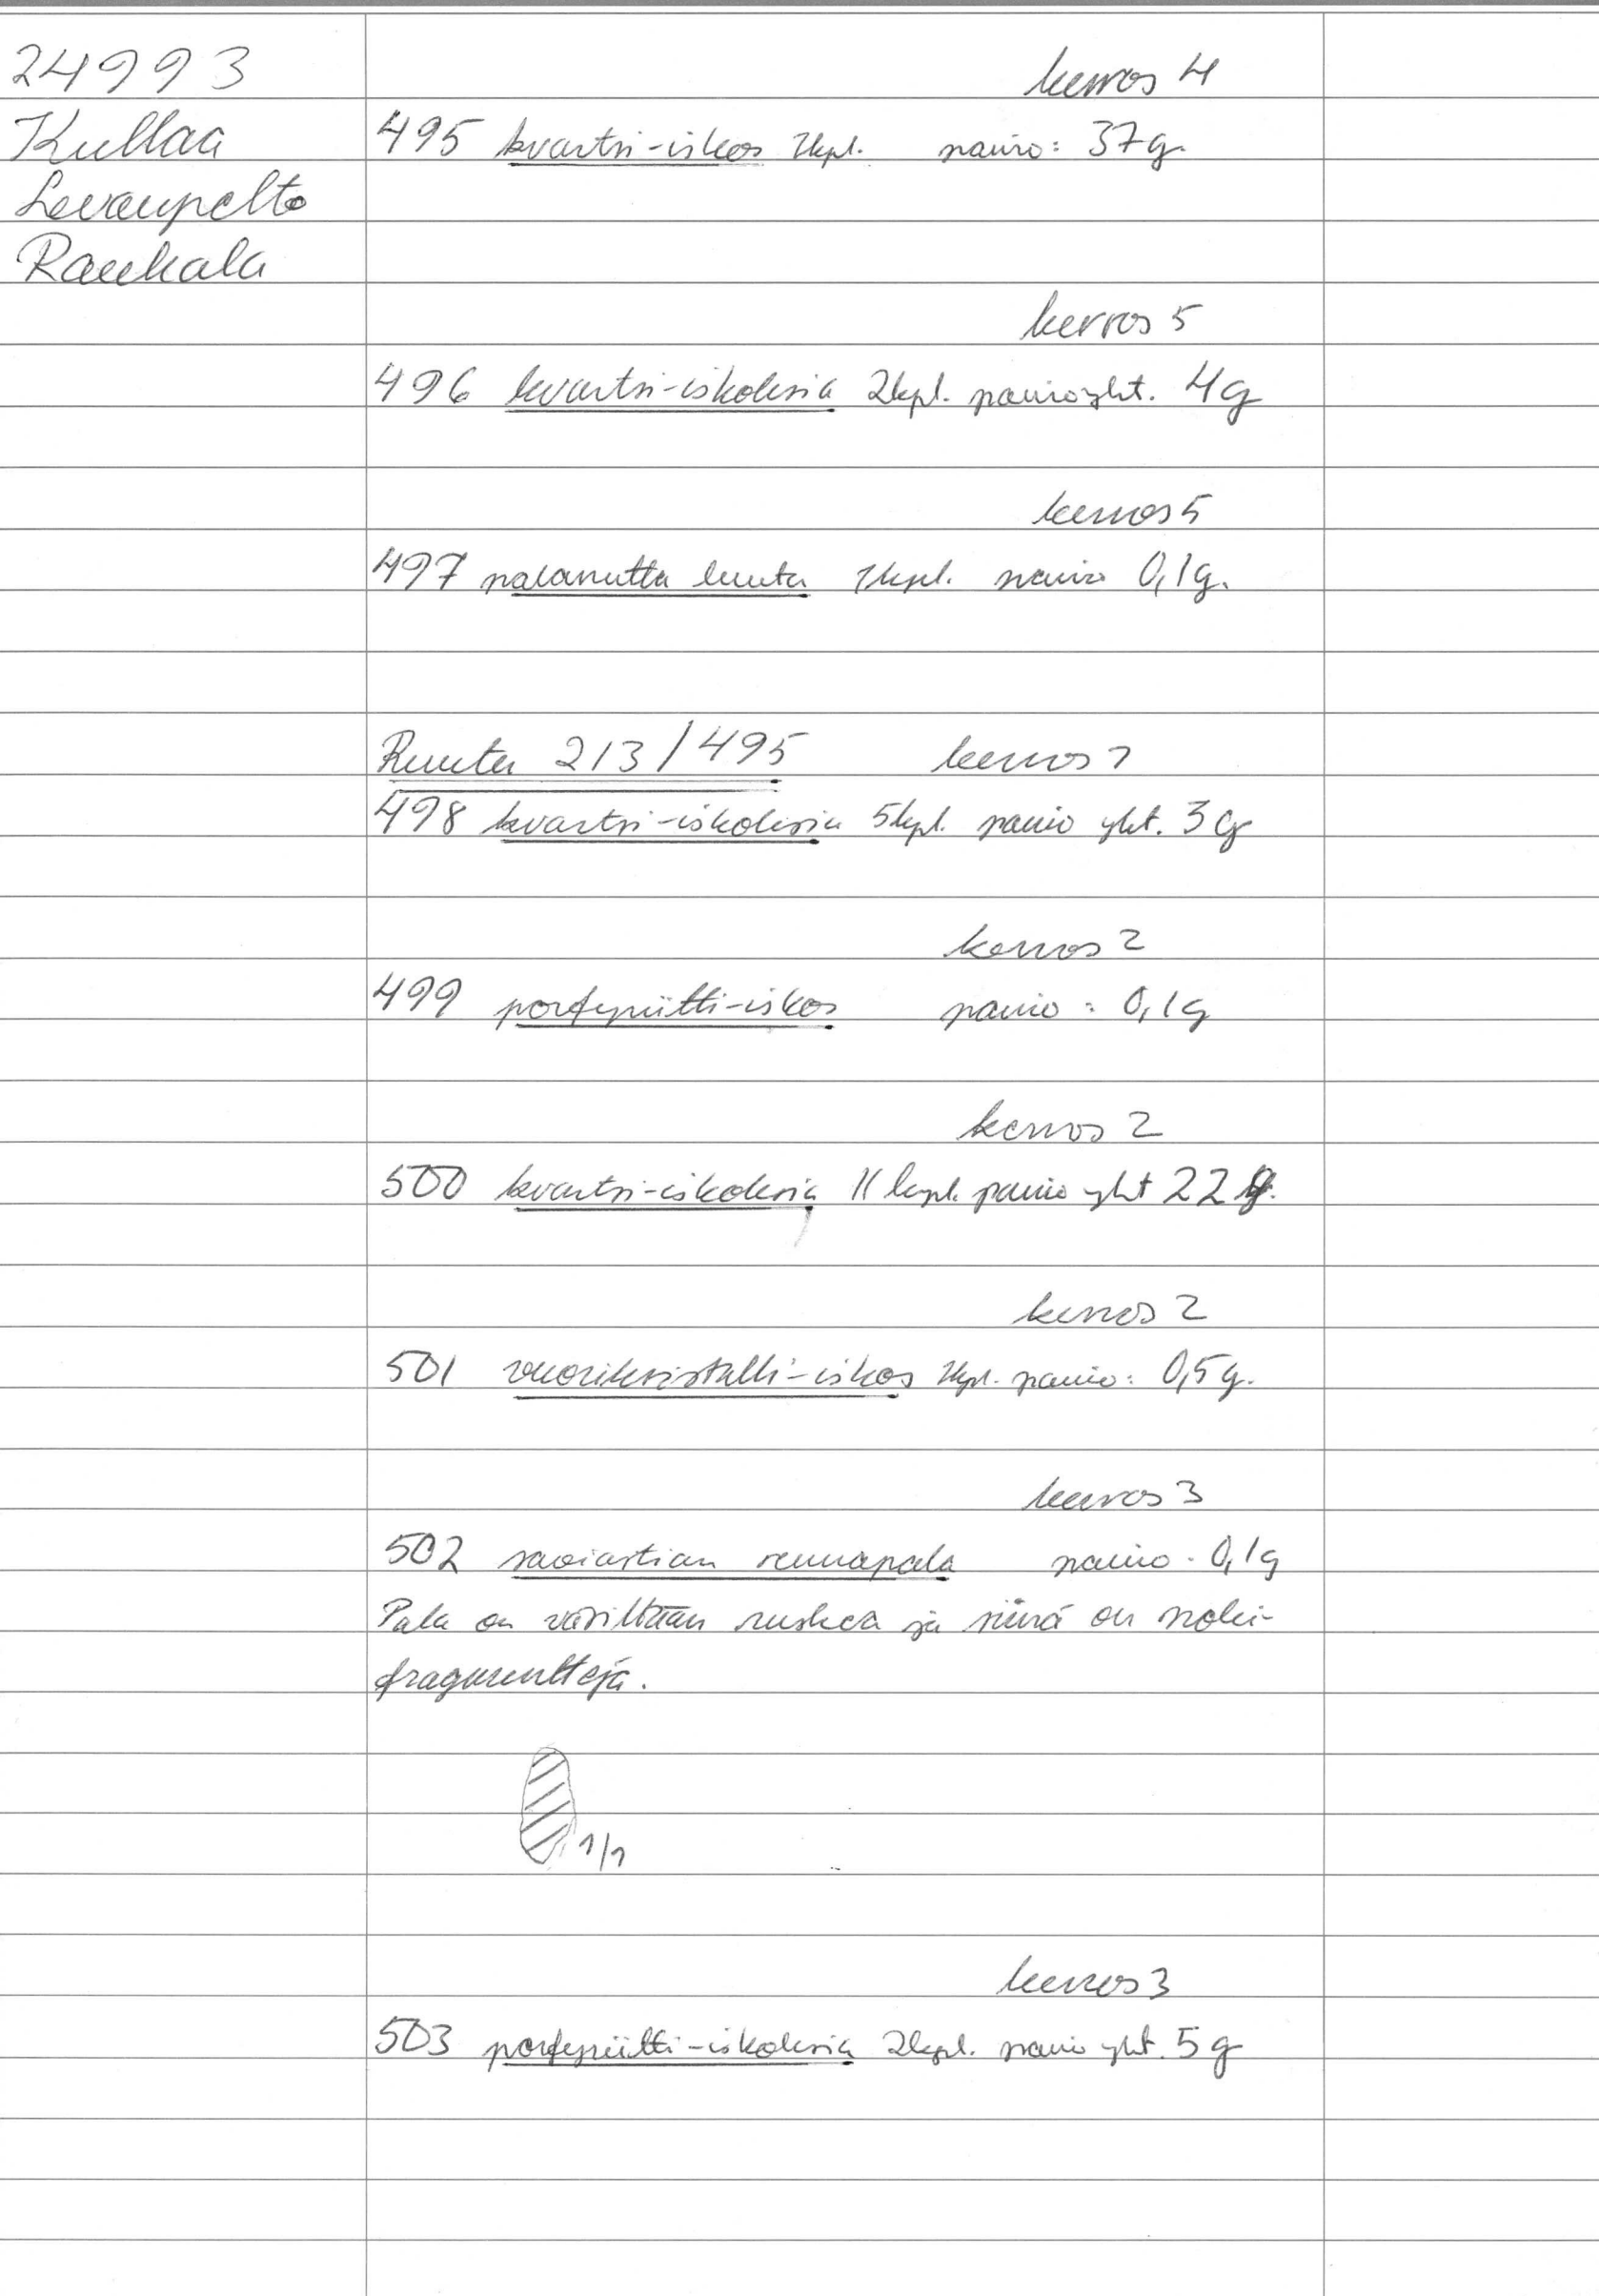 24993
Kullaa
Levanpelto
Raukala
kerros 4
495 kvartsi-iskos 1kpl. paino: 37g.
kerros 5
496 kvartsi-iskoksia 2kpl. paino yht. 4g
kerros 5
497 palanutta luuta 1kpl. paino 0,1g.
Ruutu 213/495 kerros 1
498 kvartsi-iskoksia 5kpl. paino yht. 3g
kerros 2
499 porfyriitti-iskos paino: 0,1g
kerros 2
500 kvartsi-iskoksia 11 kpl. paino yht 22 g.
kerros 2
501 vuorikristalli-iskos 1kpl. paino: 0,5g.
kerros 3
502 saviastian reunapala paino. 0,1g
Pala on väriltään ruskea ja siinä on noki-
fragmentteja.
1/1
kerros 3
503 porfyriitti-iskoksia 2kpl. paino yht. 5g